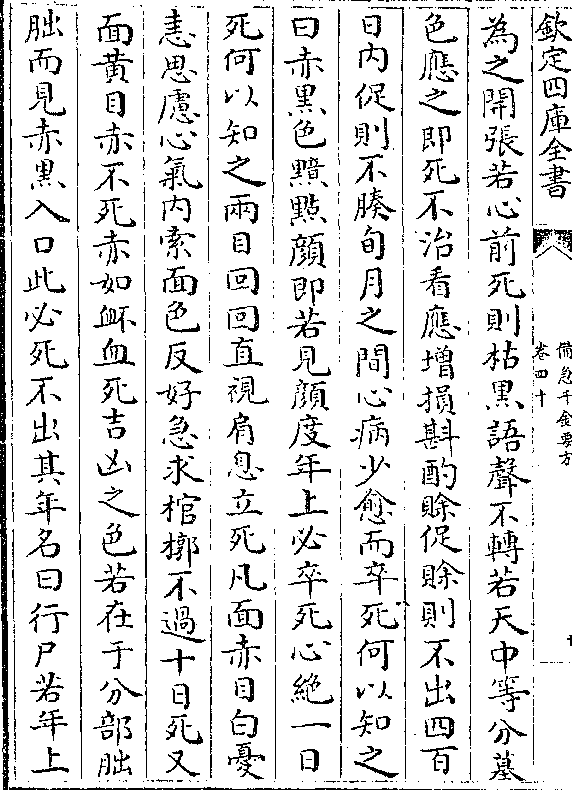 欽定四庫全書
備急千金要方
卷四十
十
為之開張若心前死則枯黑語聲不轉若天中等分墓
色應之即死不治看應增損斟酌賒促賒則不出四百
日内促則不腠旬月之間心病少愈而卒死何以知之
曰赤黑色黯㸃顔即若見顔度年上必卒死心絶一日
死何以知之兩目回回直視肩息立死凡面赤目白憂
恚思慮心氣内索面色反好急求棺槨不過十日死又
面黄目赤不死赤如衃血死吉凶之色若在于分部朏
朏而見赤黒入口此必死不出其年名曰行尸若年上